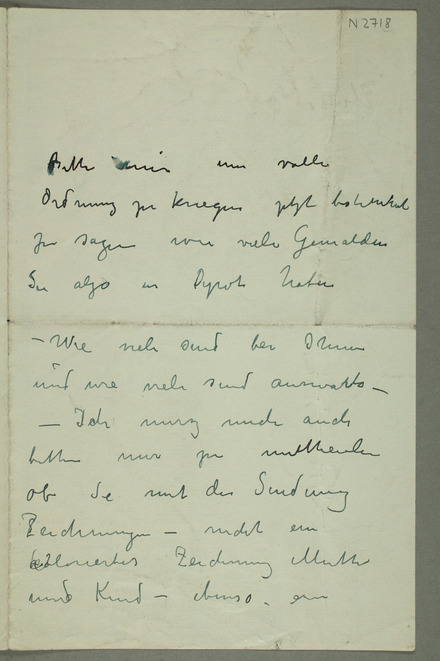 N2718
Bitte mir um volle
Ordnung zu kriegen jetzt
zu sagen wie viele Gemälden
Sie also in Depot haben
– Wie viele sind bei Ihnen
und wie viele sind auswärts –
– Ich muss mich auch
bitten mir zu mittheilen
ob Sie mit der Sendung
Zeichnungen – nicht ein
coloriertes Zeichnung Mutter
und Kind – ebenso ein